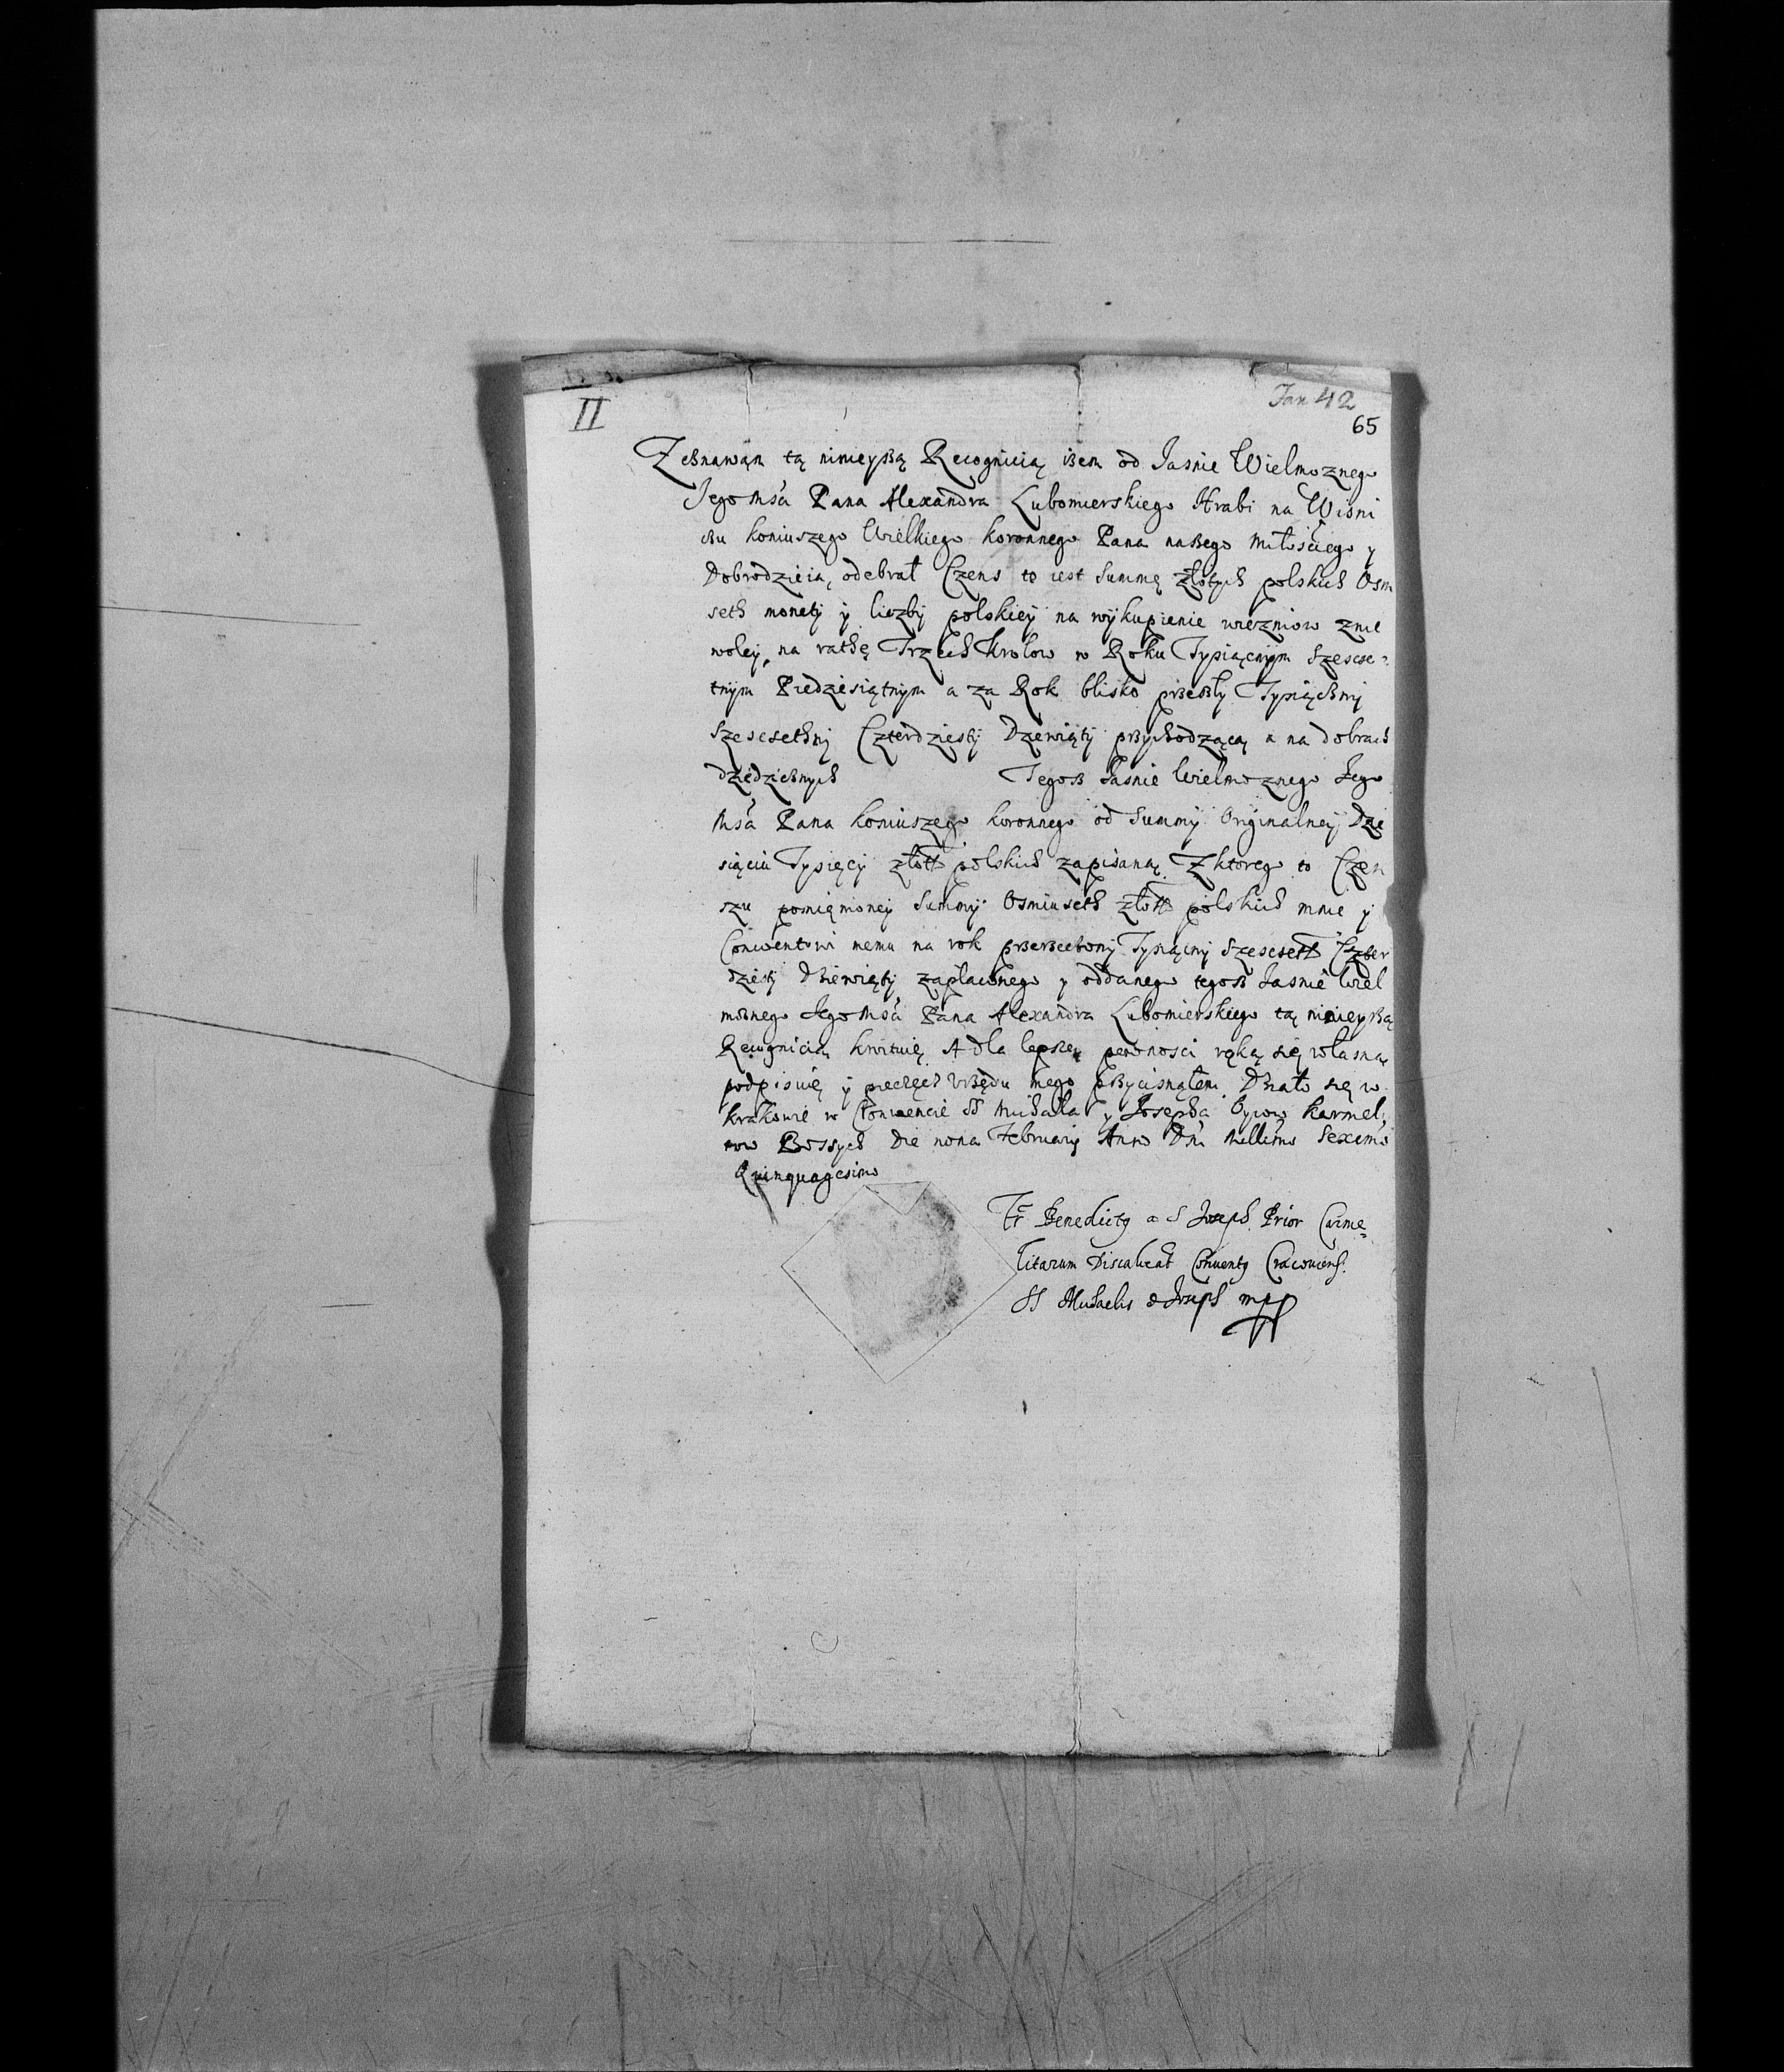 II
Jan 42
65
Zeznawąm tą ninieyszą Recognicią iżem od Jasnie Wielmoznego
Jego Mśći Pana Alexandra Lubomierskiego Hrabi na Wisni
czu koniuszego Wielkiego koronnego Pana naszego Miłosćiego y
Dobrodzieia, odebrał Czens to iest Summę złotych polskich Osm
seth monetÿ ÿ liczbÿ polskieÿ na wÿkupienie więzniow znie
woleÿ, na rathę Trzech Krolow w Roku Tysiącnÿm Szescse=
tnÿm Piedziesiątnym a za Rok blisko przeszłÿ Tysiącznÿ
Szescsethnÿ Czterdziestÿ Dziewiątÿ przychodzącą a na dobrach
dziedzicznych Tegosz Jasnie Wielmoznego Jego
Mśći Pana koniuszego koronnego od Summÿ Orÿginalneÿ Dzie
sięciu Tysięcÿ złott polskich zapisaną. Z ktorego to Czen
szu pomięnioneÿ Summÿ Osmiuseth złott polskich mnie ÿ
Conwentowi memu na rok przerzeczonÿ Tysiącnÿ Szescseth Czter
dziestÿ Dziewiątÿ zapłaconego y oddanego tegosz Jasnie Wiel
możnego Jego Mśći Pana Alexandra Lubomierskiego tą ninieyszą
Recognicią kwituię A dla lepszey pewnosci ręką się własną
podpisuię ÿ pieczęć Vrzędu mego przycisnąłem. Działo się w
krakowie w Conwencie SS Michała y Josepha Oycow karmeli
tow Bossych Die nona Februarÿ Anno Dńi Millimo Sexcmo
Quinquagesimo
Fr Benedictg a S Joseph Prior Carme=
litarum Discalceat Conuentg Cracouiens.
SS Michaelis & Joseph mpp